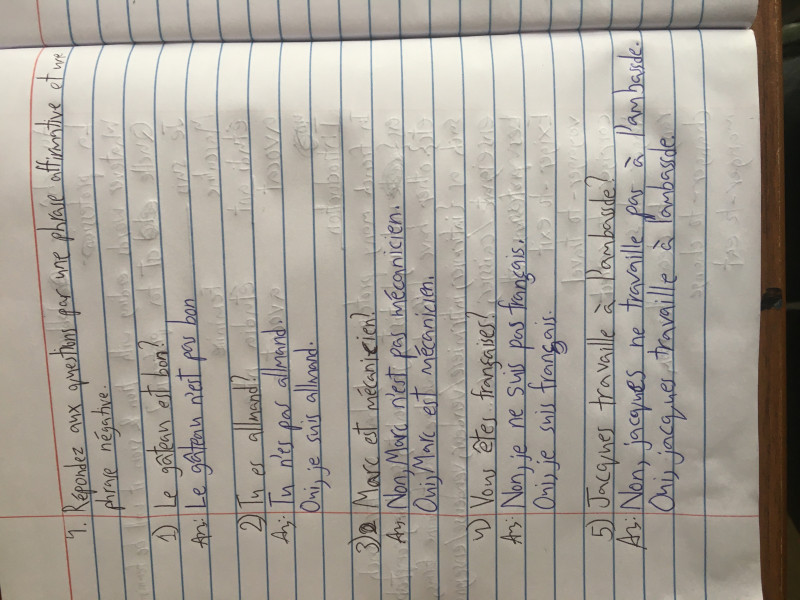 4. Répondez aux questions par une phrase affirmative et une
phrase négative.
1) Le gâteau est bon?
Ans: Le gâteau n'est pas bon
2) Tu es allmand?
Ans: Tu n'es pas allmand.
Oui, je suis allmand.
3) Marc est mécanicien?
Ans: Non, Marc n'est pas mécanicien.
Oui, Marc est mécanicien.
4) Vous êtes françaises?
Ans: Non, je ne suis pas français.
Oui, je suis français.
5) Jacques travaille à l'ambassde?
Ans: Non, jacques ne travaille pas à l'ambassde.
Oui, jacques travaille à l'ambassde.